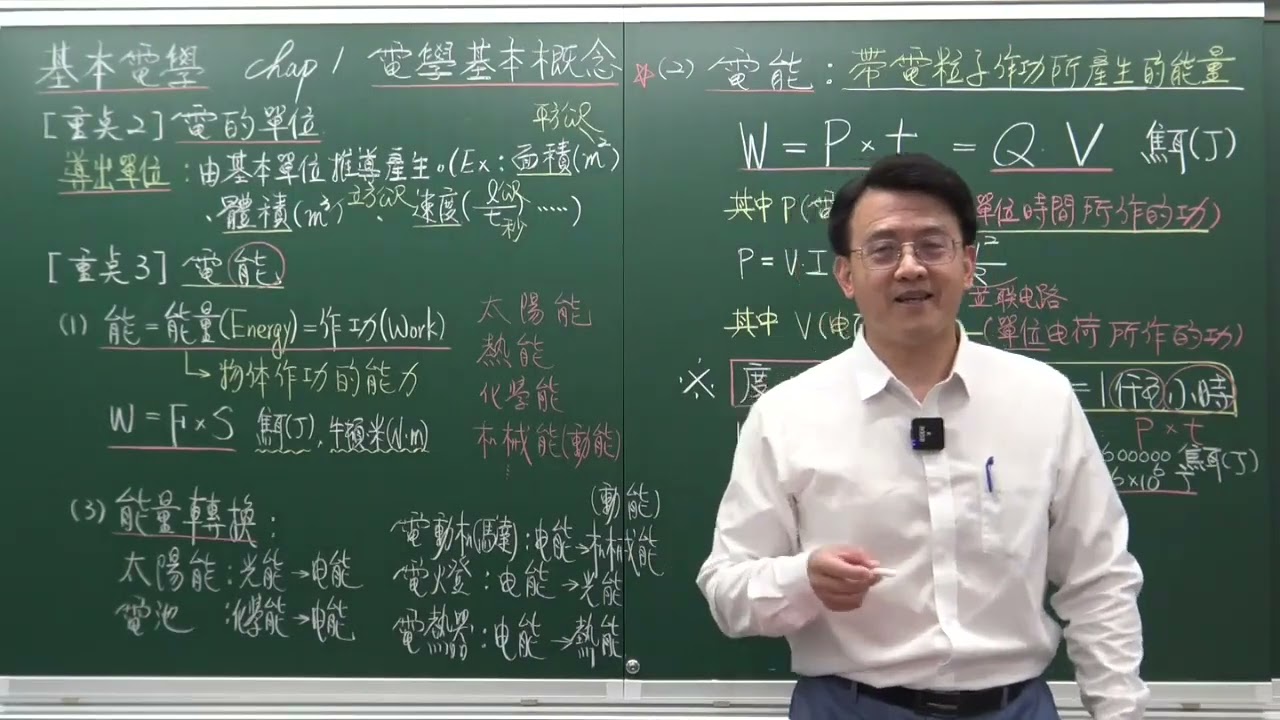 基本電學 chap 1 電學基本概念
[重点2] 電的單位
平方公尺
導出單位：由基本單位推導產生。(Ex：面積(m²)
、體積(m³) 立方公尺、速度(l公尺/t秒 ......)
[重点3] 電能
(1) 能=能量(Energy)=作功(Work)
→物体作功的能力
W = F×S 焦耳(J)、牛頓米(N·m)
太陽能
熱能
化學能
机械能(動能)
(3) 能量轉換：
太陽能：光能→电能
電池：化學能→电能
(動能)
電動机(馬達)：电能→机械能
電燈：电能→光能
電熱器：电能→熱能
☆(2) 電能：帶電粒子作功所產生的能量
W = P×t = Q·V 焦耳(J)
其中 P(電 單位時間所作的功)
P = V·I
並联电路
其中 V(電 (單位电荷所作的功)
※ 度 = 1仟瓦·小時
P×t
600000 焦耳(J)
6×10⁶ J